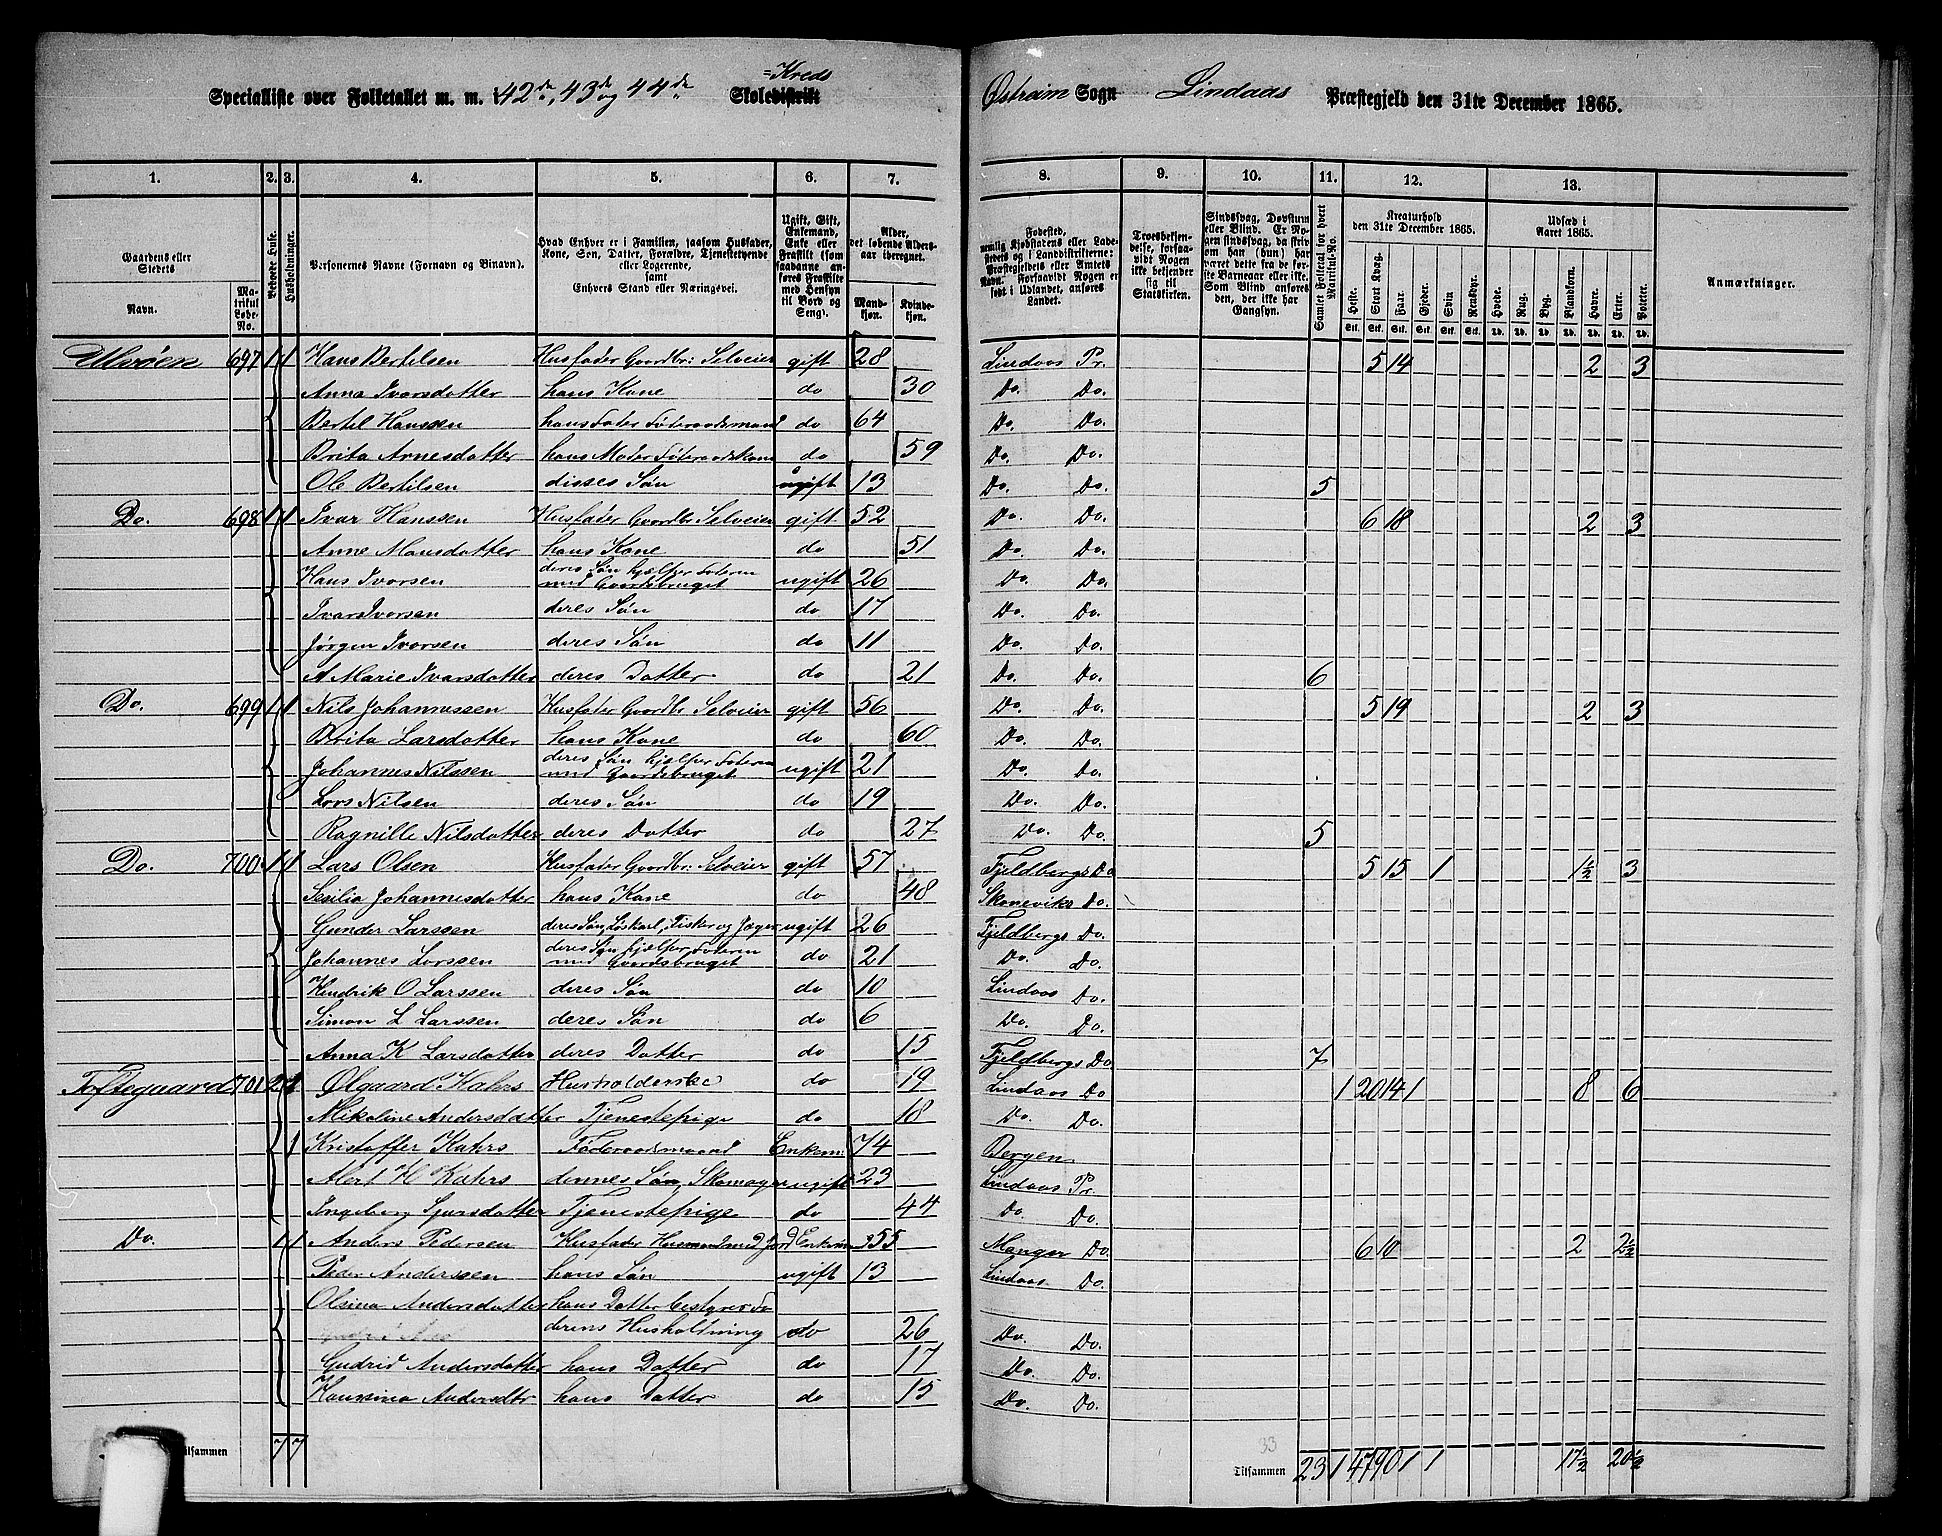 Specialliste over Folketallet m. m. 42de, 43de og 44de Skoledistrikt =Kreds Østreim Sogn Lindaas Præstegjeld den 31te December 1865.
1. 2. 3. 4. 5. 6. 7. 8. 9. 10. 11. 12. 13.
Gaardens eller Stedets Navn. Matrikul Løbe-No. Beboede Huse. Husholdninger. Personernes Navne (Fornavn og Binavn).
Hvad Enhver er i Familien, saasom Husfader, Kone, Søn, Datter, Forældre, Tjenestetyende eller Logerende, samt Enhvers Stand eller Næringsvei.
Ugift, Gift, Enkemand, Enke eller Fraskilt (som saadanne anføres Fraskilte med Hensyn til Bord og Seng).
Alder, det løbende Aldersaar iberegnet. Mandkjøn. Kvindekjøn.
Anmærkninger.
Ulvøen 697 1 1 Hans Bertilsen Husfader Gaardbr: Selveier gift 28 Lindaas Pr. 5 14 2 3
Anna Ivarsdatter hans Kone do 30 Do. Do.
Bertil Hanssen hans Fader Føderaadsmand do 64 Do. Do.
Brita Arnesdatter hans Moder Føderaadskone do 59 Do. Do.
Ole Bertilsen disses Søn ugift 13 Do. Do. 5
Do. 698 1 1 Ivar Hanssen Husfader Gaardbr Selveier gift 52 Do. Do. 6 18 2 3
Anne Monsdatter hans Kone do 51 Do. Do.
Hans Ivarsen deres Søn hjælper Faderen med Gaardsbruget ugift 26 Do. Do.
Ivar Ivarsen deres Søn do 17 Do. Do.
Jørgen Ivarsen deres Søn do 11 Do. Do.
A Marie Ivarsdatter deres Datter do 21 Do. Do. 6
Do. 699 1 1 Nils Johannessen Husfader Gaardbr Selveier gift 56 Do. Do. 5 19 2 3
Brita Larsdatter hans Kone do 60 Do. Do.
Johannes Nilssen deres Søn hjælper Faderen med Gaardsbruget ugift 21 Do. Do.
Lars Nilsen deres Søn do 19 Do. Do.
Ragnille Nilsdatter deres Datter do 27 Do. Do. 5
Do. 700 1 1 Lars Olsen Husfader Gaardbr: Selveier gift 57 Fjeldbergs Do 5 15 1 1½ 3
Sesilia Johannesdatter hans Kone do 48 Skoneviks Do.
Gunder Larssen deres Søn, Løskarl, Fisker og Jæger ugift 26 Fjeldbergs Do.
Johannes Larssen deres Søn hjælper Faderen med Gaardsbruget do 21 Do. Do.
Hendrik O Larssen deres Søn do 10 Lindaas Do.
Simon L Larssen deres Søn do 6 Do. Do.
Anna K Larsdatter deres Datter do 15 Fjeldbergs Do 7
Toftegaard 701 2 1 Olgaard Kahrs Husholderske do 19 Lindaas Do 1 20 14 1 8 6
Nikoline Andersdatter Tjenestepige do 18 Do. Do.
1 Kristoffer Kahrs Føderaadsmand Enkem: 74 Bergen
Alert H Kahrs dennes Søn, Skomager ugift 23 Lindaas Pr.
Ingeborg Sjursdatter Tjenestepige do 44 Do. Do.
Do. 1 1 Anders Pedersen Husfader Husmand med Jord Enkem 55 Manger Do. 6 10 2 2½
Peder Anderssen hans Søn ugift 13 Lindaas Do.
Olsina Andersdatter hans Datter bestyrer Faderens Husholdning do 26 Do. Do.
Gudrid Andersdatter hans Datter do 17 Do. Do.
Hansina Andersdtr hans Datter do 15 Do. Do.
33
Tilsammen 7 7 Tilsammen 23 1 47 90 1 1 17½ 20½